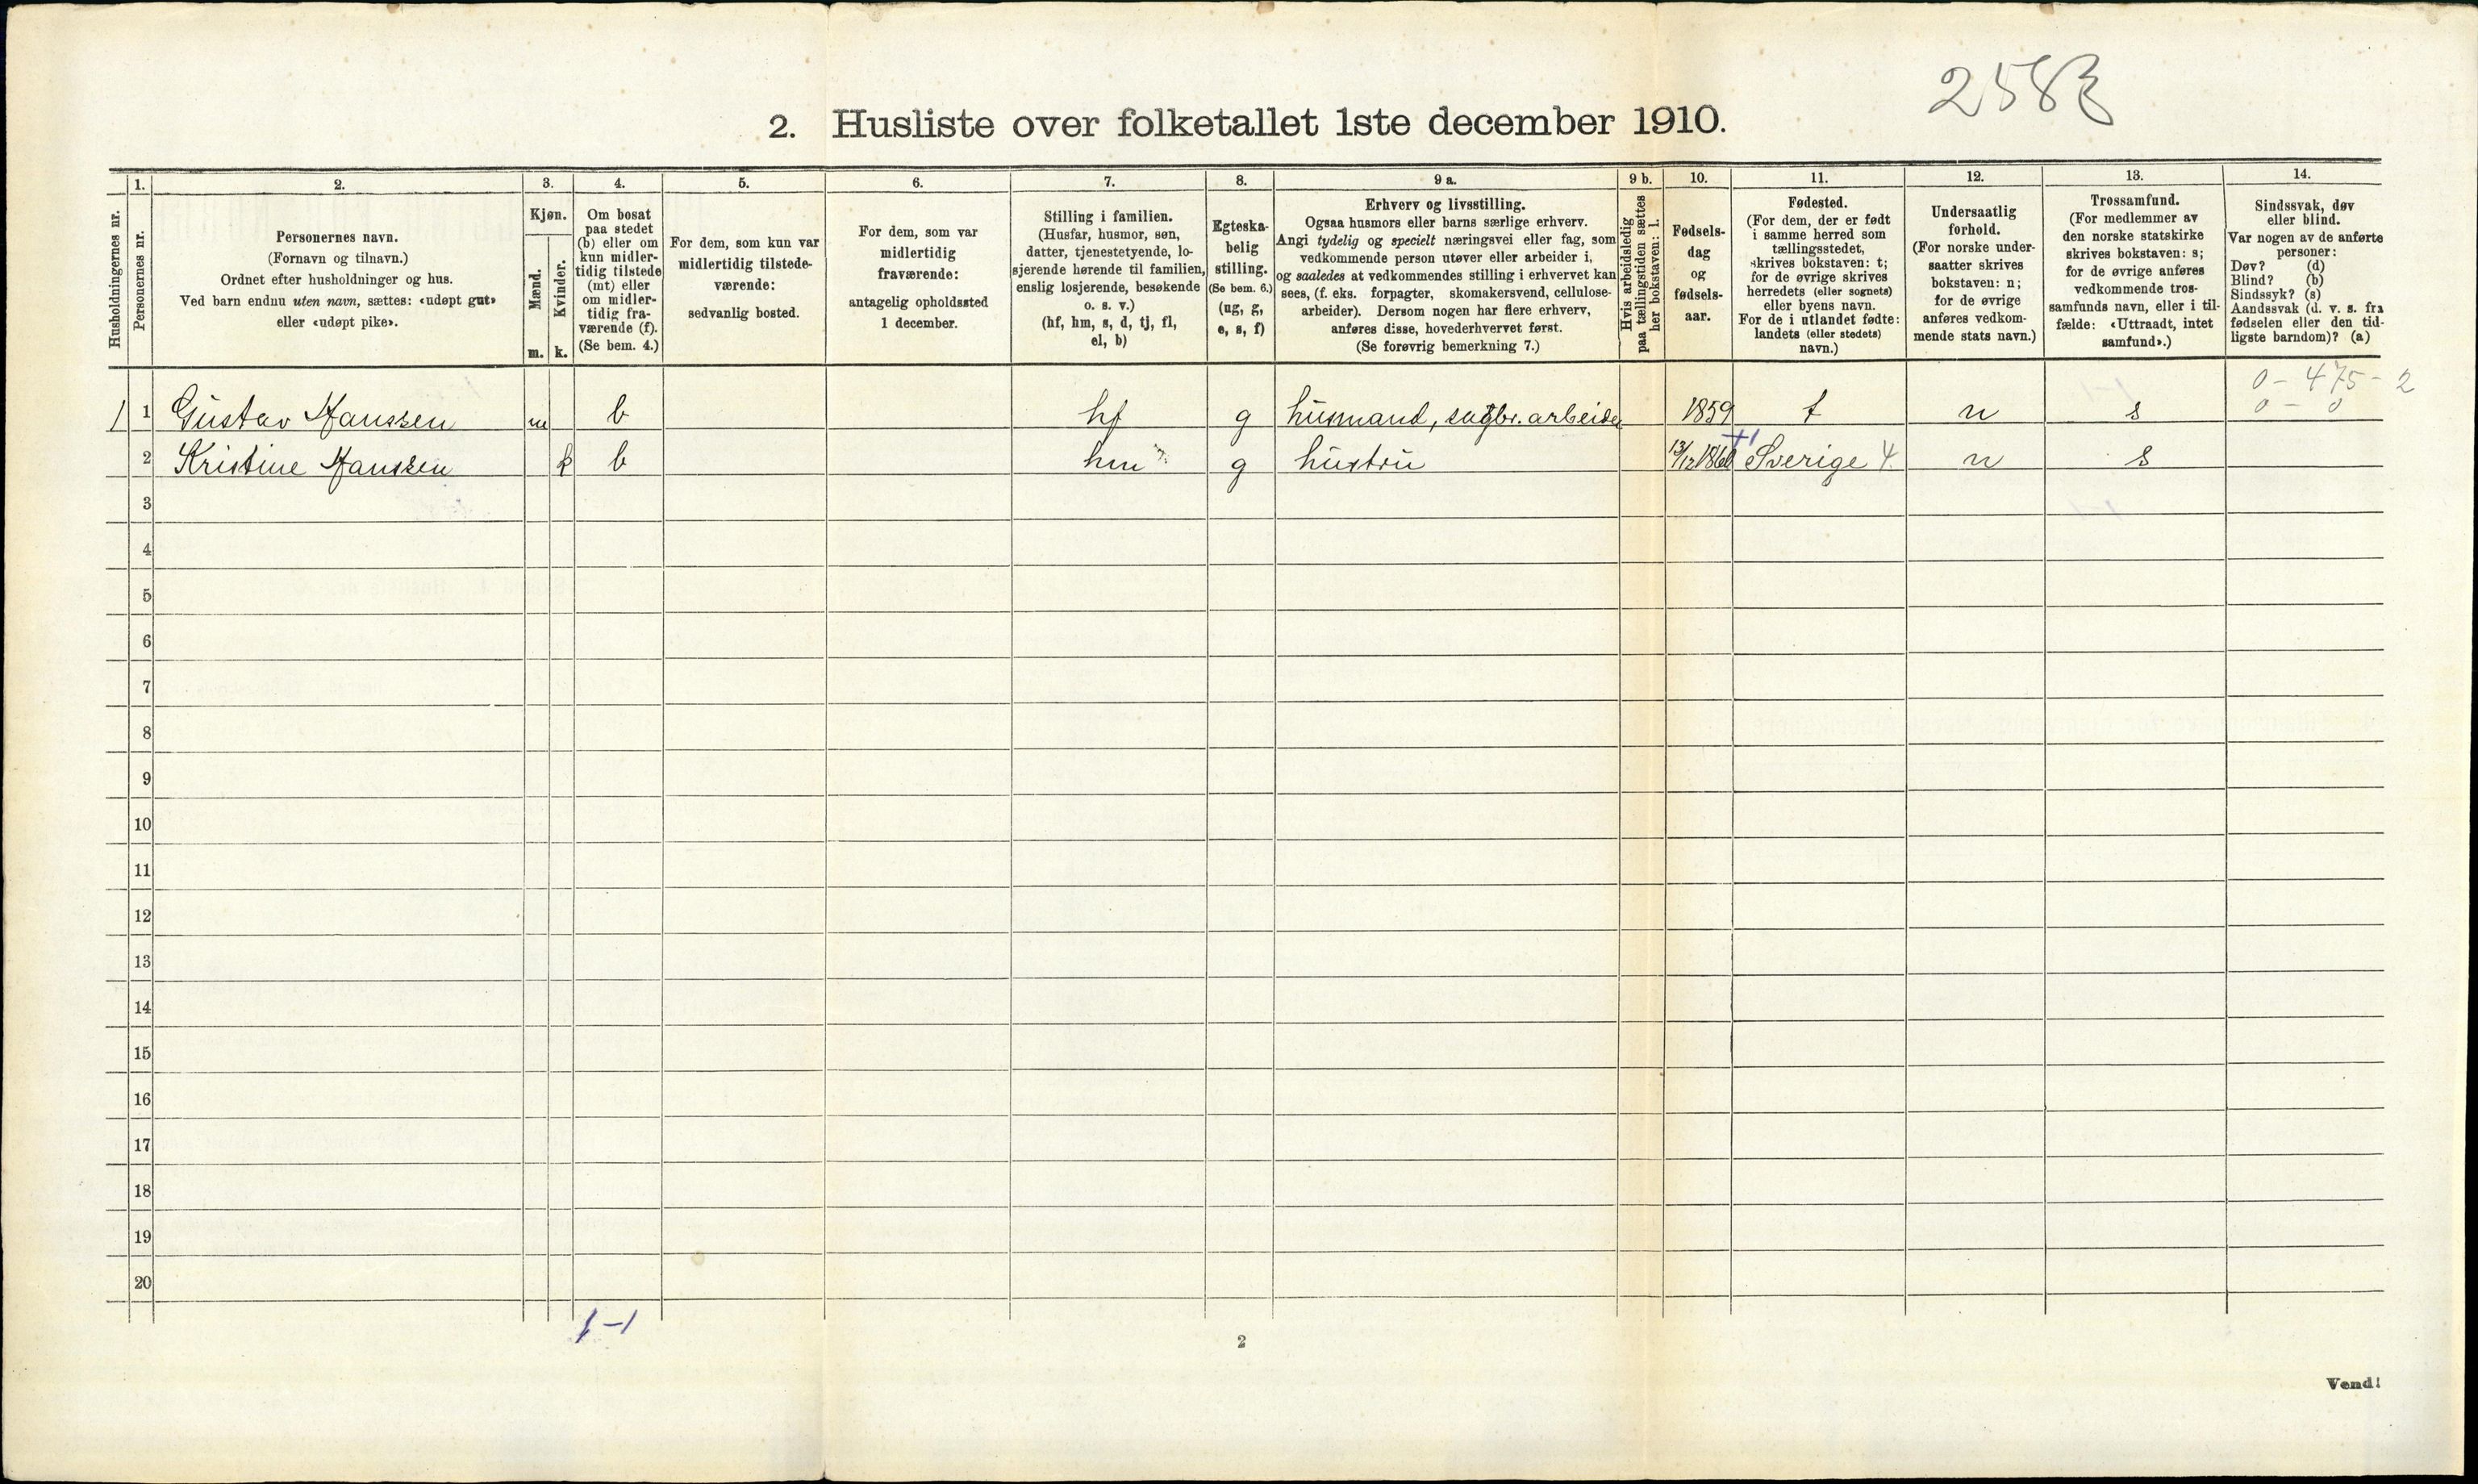 2. Husliste over folketallet 1ste december 1910.
Husholdningernes nr.
1.
Personernes nr.
2.
Personernes navn.
(Fornavn og tilnavn.)
Ordnet efter husholdninger og hus.
Ved barn endnu uten navn, sættes: «udøpt gut»
eller «udøpt pike».
3.
Kjøn.
Mænd.
Kvinder.
m. k.
4.
Om bosat
paa stedet
(b) eller om
kun midler-
tidig tilstede
(mt) eller
om midler-
tidig fra-
værende (f).
(Se bem. 4.)
5.
For dem, som kun var
midlertidig tilstede-
værende:
sedvanlig bosted.
6.
For dem, som var
midlertidig
fraværende:
antagelig opholdssted
1 december.
7.
Stilling i familien.
(Husfar, husmor, søn,
datter, tjenestetyende, lo-
sjerende hørende til familien,
enslig losjerende, besøkende
o. s. v.)
(hf, hm, s, d, tj, fl,
el, b)
8.
Egteska-
belig
stilling.
(Se bem. 6.)
(ug, g,
e, s, f)
9 a.
Erhverv og livsstilling.
Ogsaa husmors eller barns særlige erhverv.
Angi tydelig og specielt næringsvei eller fag, som
vedkommende person utøver eller arbeider i,
og saaledes at vedkommendes stilling i erhvervet kan
sees, (f. eks. forpagter, skomakersvend, cellulose-
arbeider). Dersom nogen har flere erhverv,
anføres disse, hovederhvervet først.
(Se forøvrig bemerkning 7.)
9 b.
Hvis arbeidsledig
paa tællingstiden sættes
her bokstaven: l.
10.
Fødsels-
dag
og
fødsels-
aar.
11.
Fødested.
(For dem, der er født
i samme herred som
tællingsstedet,
skrives bokstaven: t;
for de øvrige skrives
herredets (eller sognets)
eller byens navn.
For de i utlandet fødte:
landets (eller stedets)
navn.)
12.
Undersaatlig
forhold.
(For norske under-
saatter skrives
bokstaven: n;
for de øvrige
anføres vedkom-
mende stats navn.)
13.
Trossamfund.
(For medlemmer av
den norske statskirke
skrives bokstaven: s;
for de øvrige anføres
vedkommende tros-
samfunds navn, eller i til-
fælde: «Uttraadt, intet
samfund».)
14.
Sindssvak, døv
eller blind.
Var nogen av de anførte
personer:
Døv? (d)
Blind? (b)
Sindssyk? (s)
Aandssvak (d. v. s. fra
fødselen eller den tid-
ligste barndom)? (a)
0 - 475 - 2
0 - 0
1 1 Gustav Hanssen m b hf g husmand, sagbr. arbeider 1859 t n s
2 Kristine Hanssen k b hm g hustru 13/12 1860 Sverige 4. n s
3
4
5
6
7
8
9
10
11
12
13
14
15
16
17
18
19
20
1-1
2
Vend!